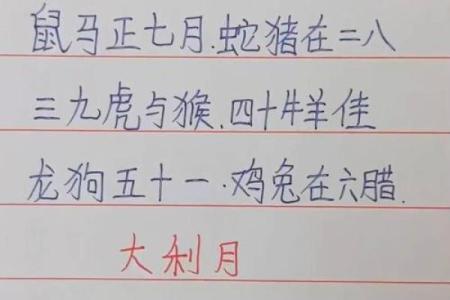 鼠马正七月.蛇猪在二八
三九虎与猴.四十牛羊佳
龙狗五十一.鸡兔在六腊.
大利月